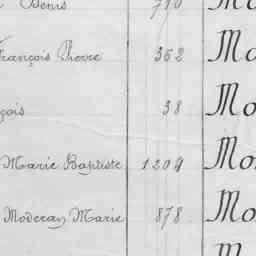 Denis 790 Mo
François Pierre 362 Mo
çois 38 Mo
Marie Baptiste 1204 Mo
Moderan Marie 878 Mo